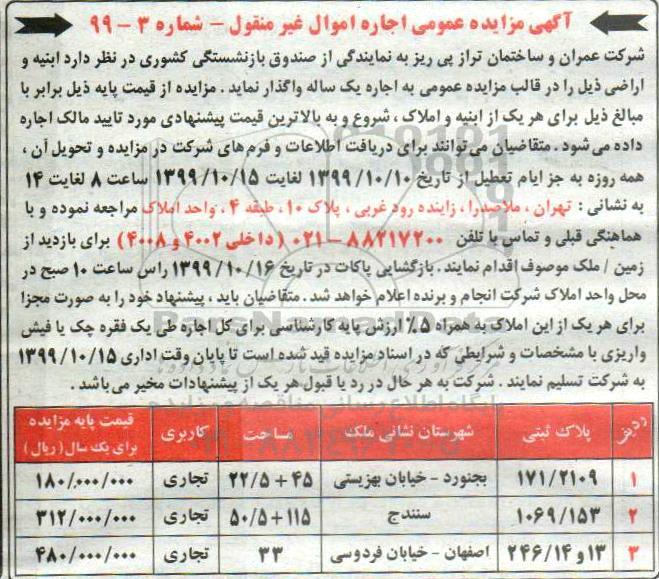 آگهی مزایده عمومی اجاره اموال غیر منقول - شماره ۳ - ۹۹
شرکت عمران و ساختمان تراز پی ریز به نمایندگی از صندوق بازنشستگی کشوری در نظر دارد ابنیه و
اراضی ذیل را در قالب مزایده عمومی به اجاره یک ساله واگذار نماید . مزایده از قیمت پایه ذیل برابر با
مبالغ ذیل برای هر یک از ابنیه و املاک ، شروع و به بالاترین قیمت پیشنهادی مورد تایید مالک اجاره
داده می شود . متقاضیان می توانند برای دریافت اطلاعات و فرم های شرکت در مزایده و تحویل آن ،
همه روزه به جز ایام تعطیل از تاریخ ۱۳۹۹/۱۰/۱۰ لغایت ۱۳۹۹/۱۰/۱۵ ساعت ۸ لغایت ۱۴
به نشانی : تهران ، ملاصدرا ، زاینده رود غربی ، پلاک ۱۰ ، طبقه ۴ ، واحد املاک مراجعه نموده و با
هماهنگی قبلی و تماس با تلفن ۸۸۲۱۷۲۰۰ - ۰۲۱ (داخلی ۴۰۰۲ و ۴۰۰۸) برای بازدید از
زمین / ملک موصوف اقدام نمایند . بازگشایی پاکات در تاریخ ۱۳۹۹/۱۰/۱۶ راس ساعت ۱۰ صبح در
محل واحد املاک شرکت انجام و برنده اعلام خواهد شد . متقاضیان باید ، پیشنهاد خود را به صورت مجزا
برای هر یک از این املاک به همراه ۵٪ ارزش پایه کارشناسی برای کل اجاره طی یک فقره چک یا فیش
واریزی با مشخصات و شرایطی که در اسناد مزایده قید شده است تا پایان وقت اداری ۱۳۹۹/۱۰/۱۵
به شرکت تسلیم نمایند . شرکت به هر حال در رد یا قبول هر یک از پیشنهادات مخیر می باشد .
ردیف پلاک ثبتی شهرستان نشانی ملک مساحت کاربری قیمت پایه مزایده برای یک سال (ریال)
۱ ۱۷۱/۲۱۰۹ بجنورد - خیابان بهزیستی ۴۵ + ۲۲/۵ تجاری ۱۸۰/۰۰۰/۰۰۰
۲ ۱۰۶۹/۱۵۳ سنندج ۱۱۵ + ۵۰/۵ تجاری ۳۱۲/۰۰۰/۰۰۰
۳ ۱۳ و ۲۴۶/۱۴ اصفهان - خیابان فردوسی ۳۳ تجاری ۴۸۰/۰۰۰/۰۰۰